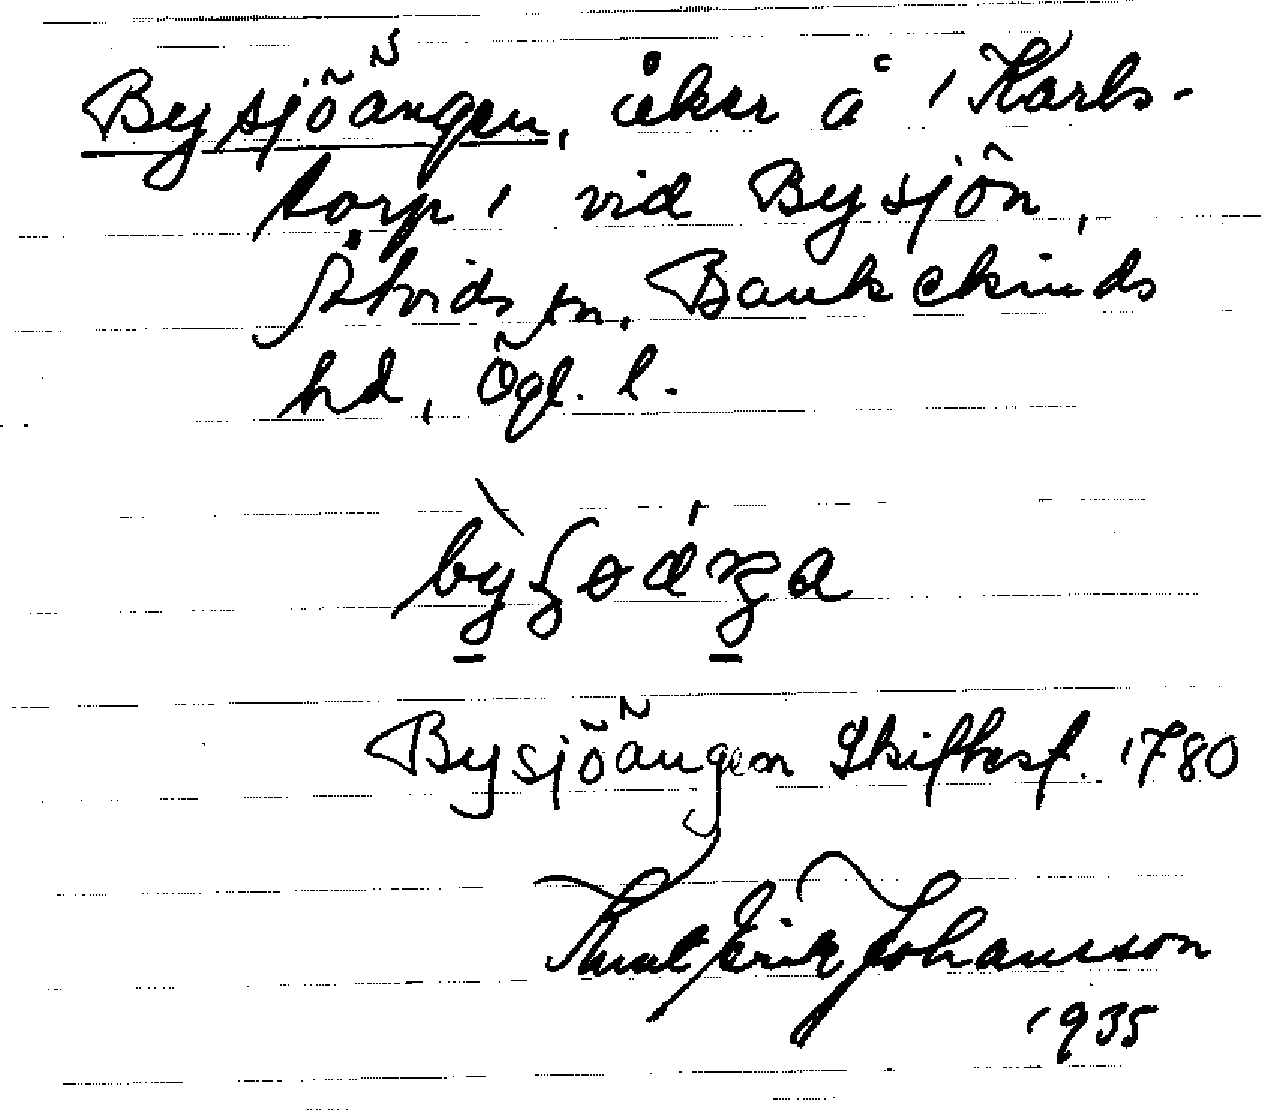 Bysjöängen, åker å 1 Karls-
torp 1 vid Bysjön,
Åtvids sn, Bankekinds
hd, Ögl. l.
Bysjöängen Skiftesf. 1780
Knut Erik Johansson
1935